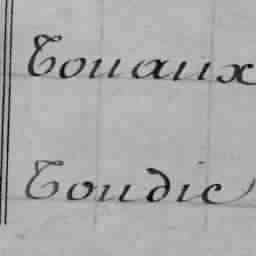 Touaux
Toudic